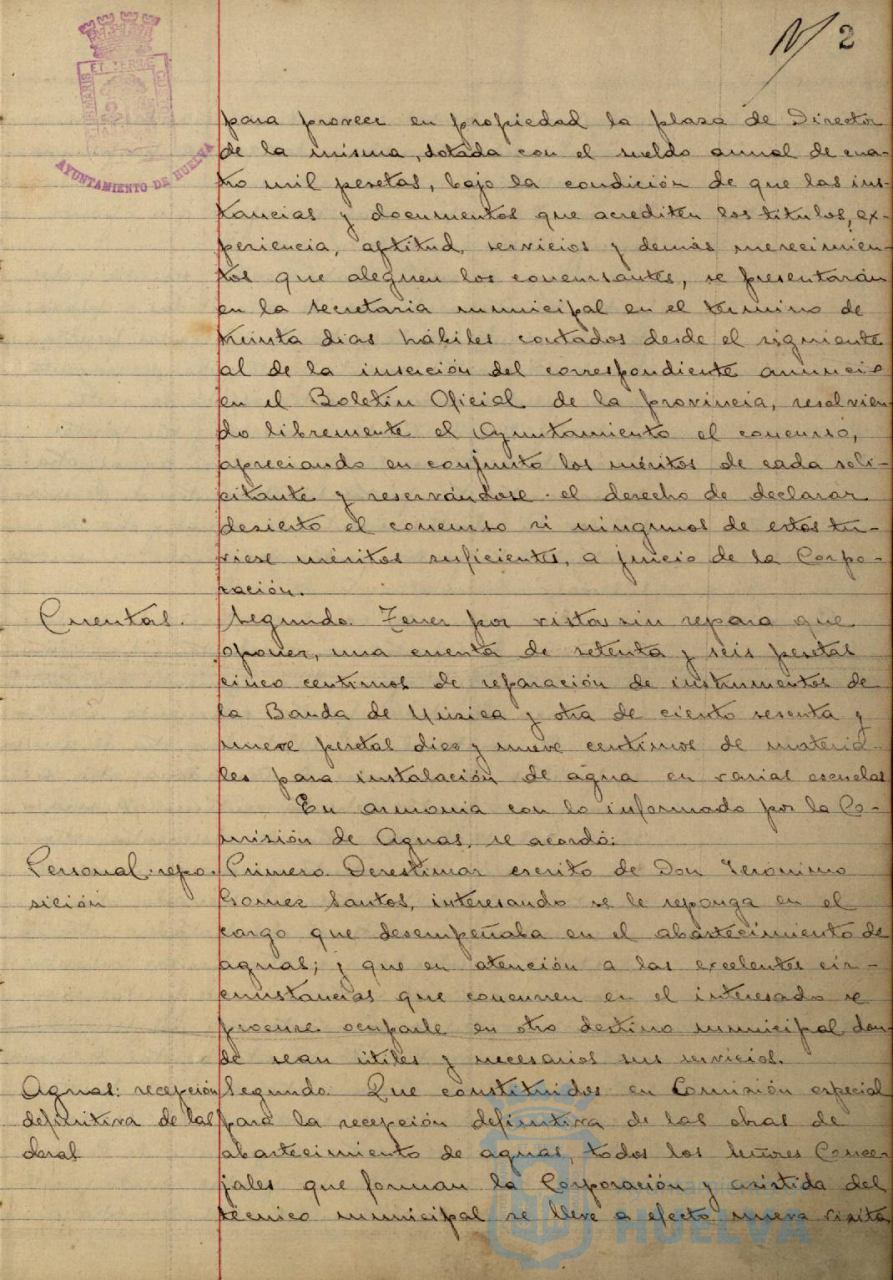 N/ 2
PORTUS MARIS ET TERRAE CUSTODIA
AYUNTAMIENTO DE HUELVA
para proveer en propiedad la plaza de Director
de la misma, dotada con el sueldo anual de cua-
tro mil pesetas, bajo la condición de que las ins-
tancias y documentos que acrediten los titulos, ex-
periencia, aptitud, servicios y demás merecimien-
tos que aleguen los concursantes, se presentarán
en la Secretaria municipal en el termino de
treinta dias hábiles contados desde el siguiente
al de la inserción del correspondiente anuncio
en el Boletin Oficial de la provincia, resolvien-
do libremente el Ayuntamiento el concurso,
apreciando en conjunto los méritos de cada soli-
citante y reservándose el derecho de declarar
desierto el concurso si ningunos de estos tu-
viese méritos suficientes, a juicio de la Corpo-
ración.
Cuentas. Segundo. Tener por vistas sin reparo que
oponer, una cuenta de setenta y seis pesetas
cinco centimos de reparación de instrumentos de
la Banda de Música y otra de ciento sesenta y
nueve pesetas diez y nueve centimos de materia-
les para instalación de agua en varias escuelas
En armonia con lo informado por la Co-
misión de Aguas, se acordó:
Personal. repo- Primero. Desestimar escrito de Don Jerónimo
sición Gomez Santos, interesando se le reponga en el
cargo que desempeñaba en el abastecimiento de
aguas; y que en atención a las excelentes cir-
cunstancias que concurren en el interesado se
procure ocuparle en otro destino municipal don-
de sean útiles y necesarios sus servicios.
Aguas: recepción Segundo. Que constituidos en Comisión especial
definitiva de las para la recepción definitiva de las obras de
obras abastecimiento de aguas, todos los Señores Conce-
jales que forman la Corporación y asistida del
técnico municipal se lleve a efecto nueva visita
Ayuntamiento de
HUELVA